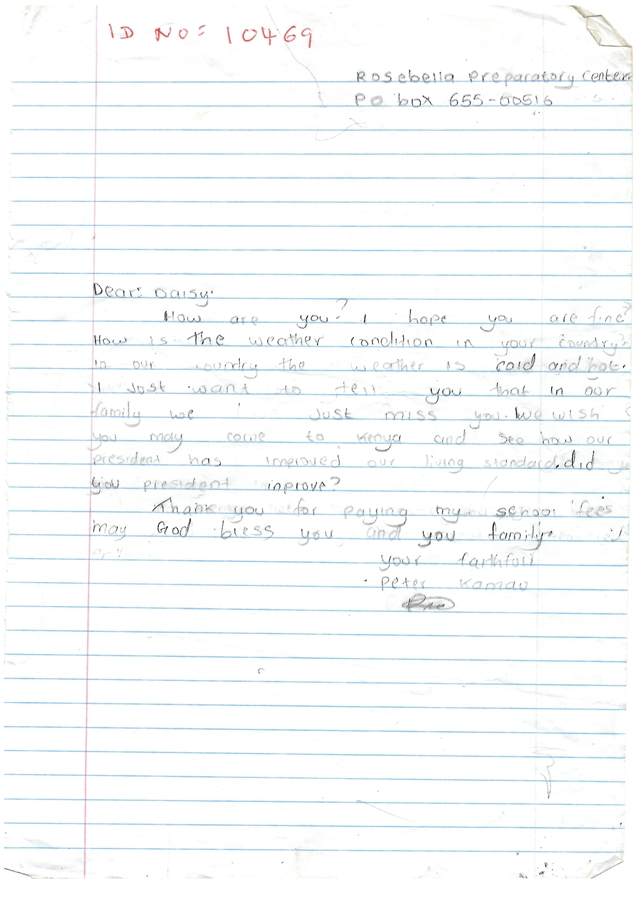 ID NO: 10469
Rosebella Preparatory Center
PO box 655-00516
Dear: Daisy.
How are you? I hope you are fine?
How is the weather condition in your country?
in our country the weather is cold and hot.
I Just want to tell you that in our
family we Just miss you. We wish
you may come to Kenya and see how our
president has improved our living standard. did
you president inprove?
Thank you for paying my school fees
may God bless you and you family
your faithfull
Peter Kamau